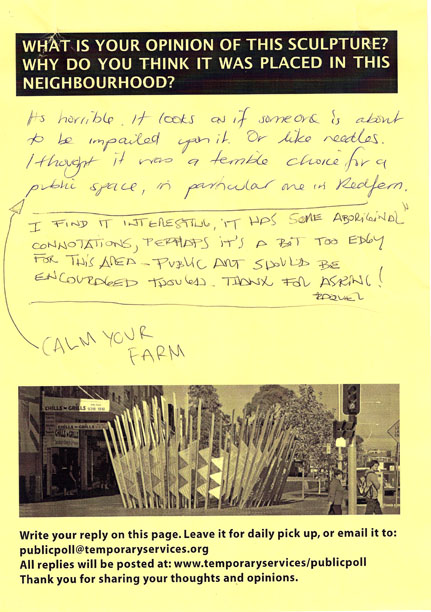 WHAT IS YOUR OPINION OF THIS SCULPTURE?
WHY DO YOU THINK IT WAS PLACED IN THIS
NEIGHBOURHOOD?
Its horrible. It looks as if someone is about
to be impailed upon it. Or like needles.
I thought it was a terrible choice for a
public space, in particular one in Redfern.
I FIND IT INTERESTING, IT HAS SOME ABORIGINAL
CONNOTATIONS, PERHAPS IT'S A BIT TOO EDGY
FOR THIS AREA - PUBLIC ART SHOULD BE
ENCOURAGED THOUGH. THANX FOR ASKING!
RAQUEL
CALM YOUR
FARM
CHILLS 'N GRILLS
Write your reply on this page. Leave it for daily pick up, or email it to:
publicpoll@temporaryservices.org
All replies will be posted at: www.temporaryservices/publicpoll
Thank you for sharing your thoughts and opinions.